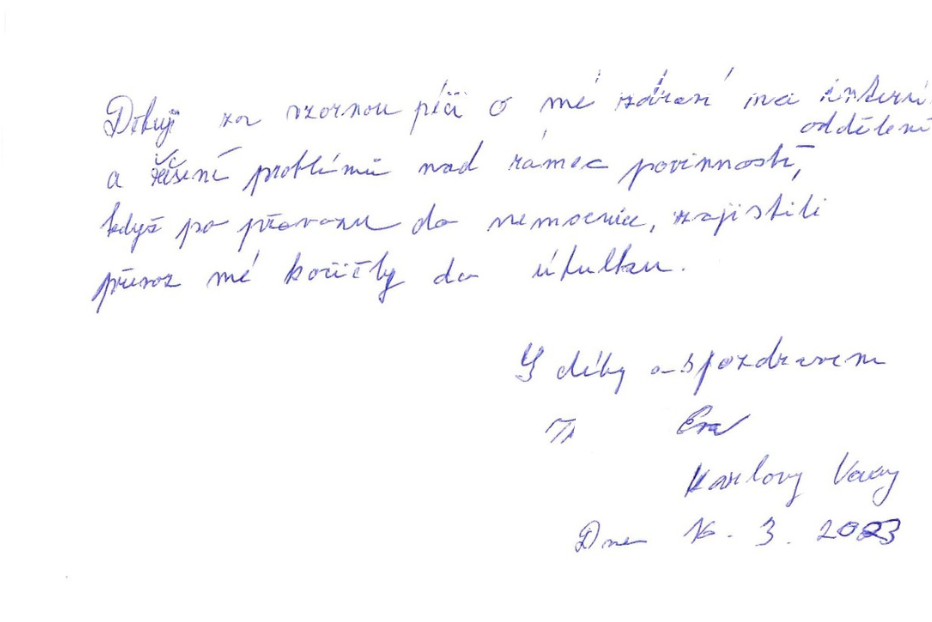 Děkuji za vzornou péči o mé zdraví na interní
oddělení
a řešení problémů nad rámec povinností,
když po převozu do nemocnice, zajistili
převoz mé kočičky do útulku.
S díky a s pozdravem
Eva
Karlovy Vary
Dne 16. 3. 2023